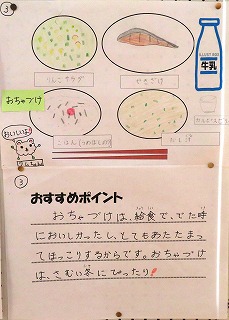 ③
りんごサラダ
やきざけ
ILLUST BOX
牛乳
おちゃづけ
おいしいよ
ごはん(うめぼし)
みそ汁
③
おすすめポイント
おちゃづけは、給食で、でた時
においしかったし、とてもあたたまっ
てほっこりするからです。おちゃづけ
は、さむい冬にぴったり!